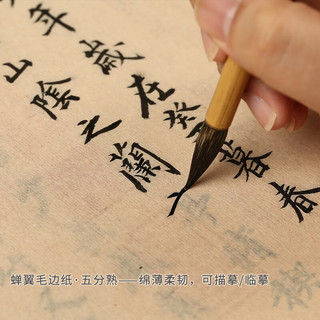 年歲在癸暮春
山陰之蘭
蝉翼毛边纸·五分熟——绵薄柔韧，可描摹/临摹